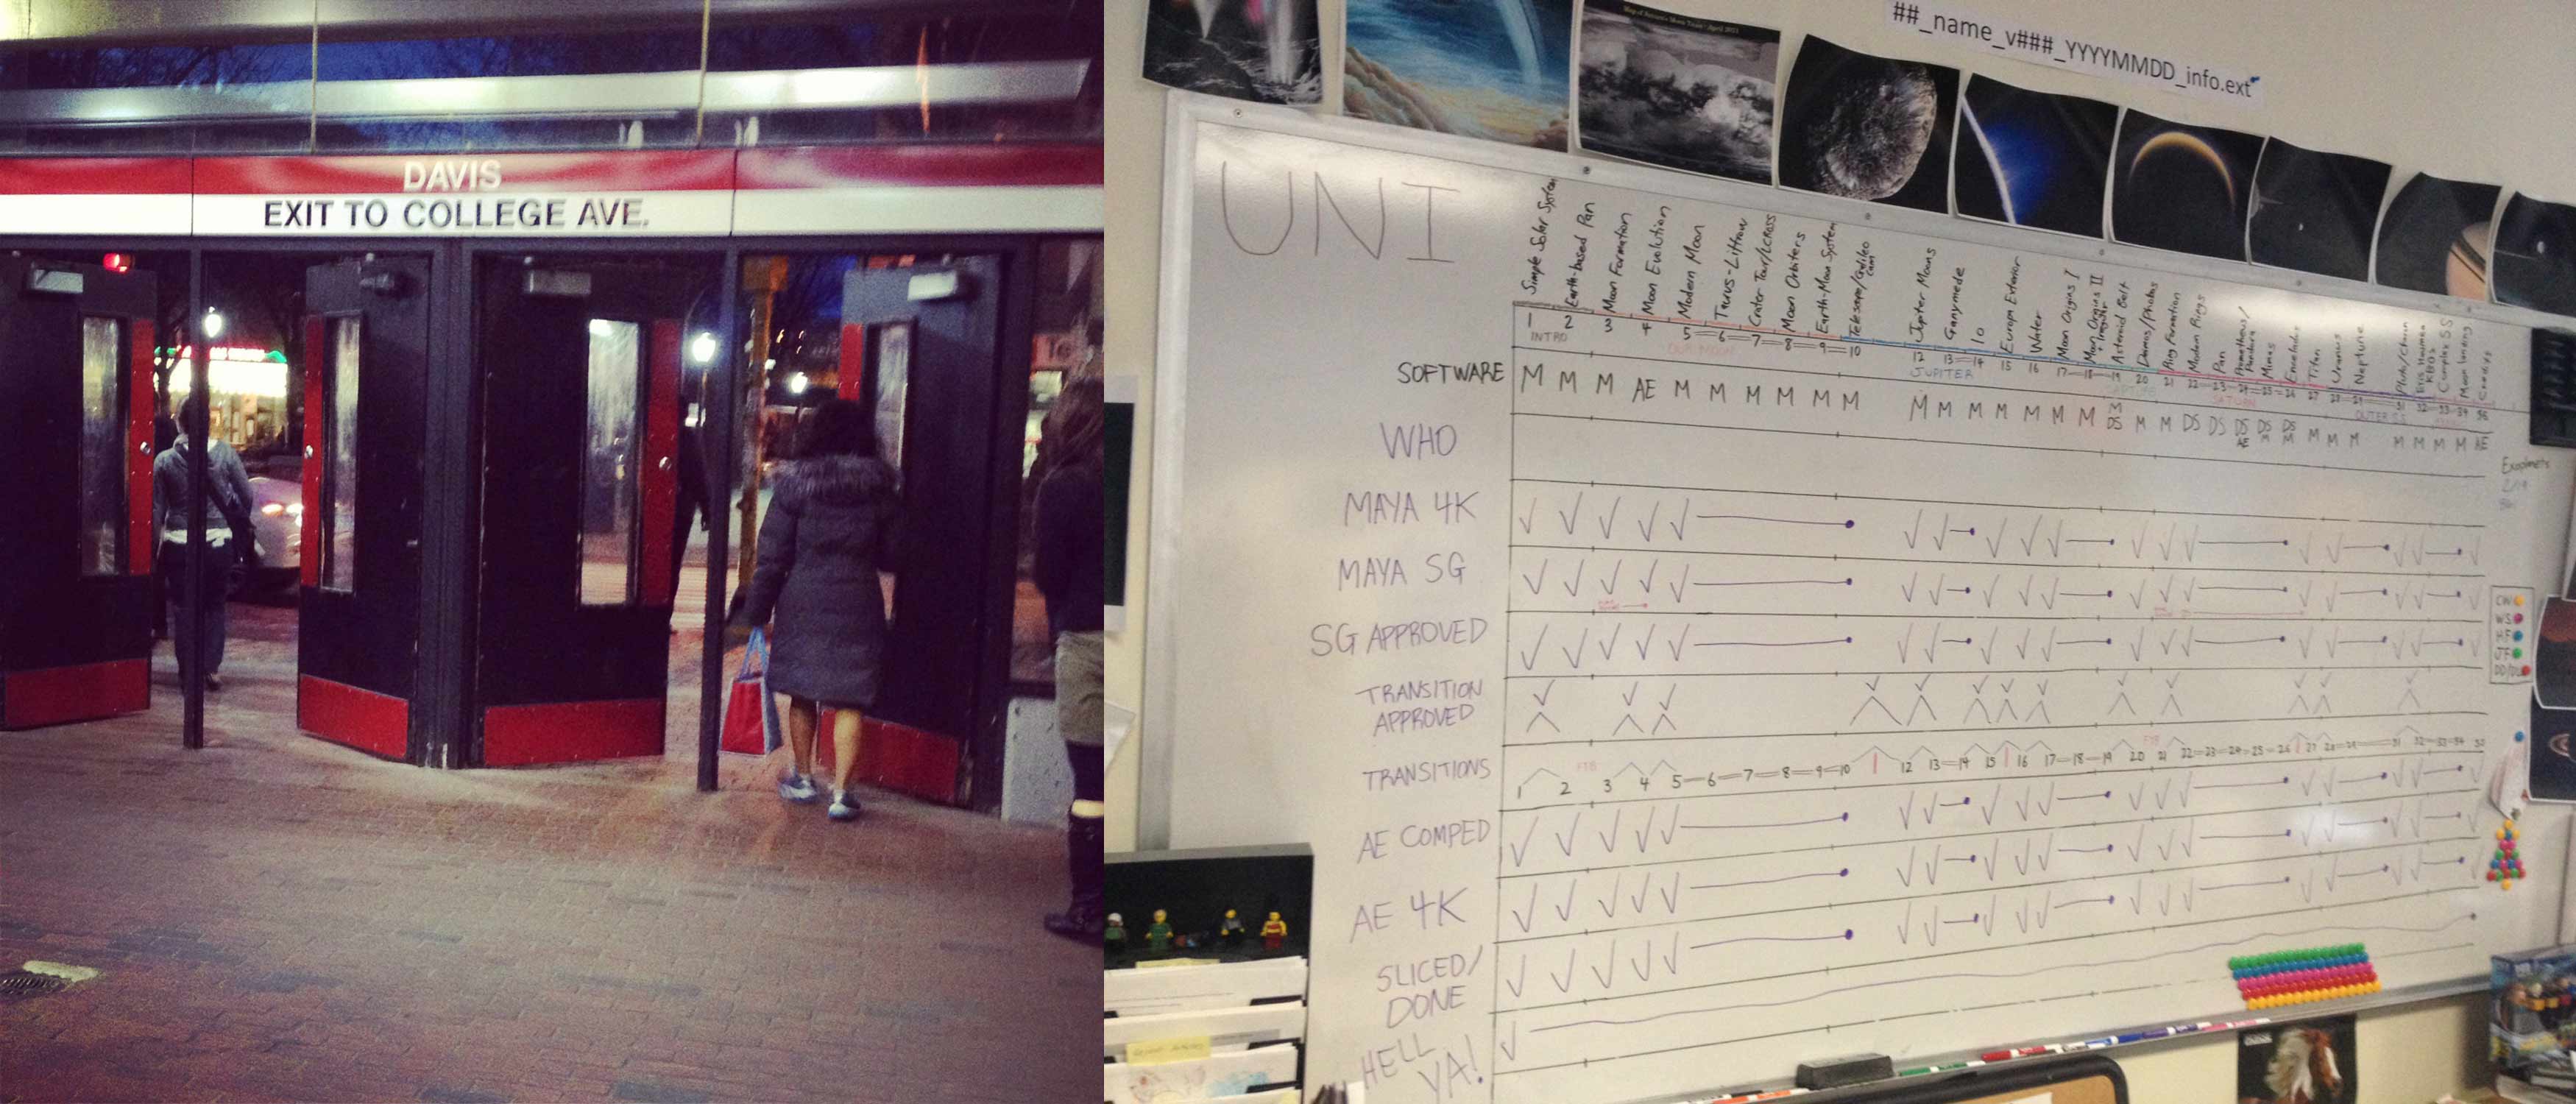 DAVIS
EXIT TO COLLEGE AVE.
##_name_v###_YYYYMMDD_info.ext
UNI
Simple Solar System
Earth-based Pan
Moon Formation
Moon Evolution
Modern Moon
Taurus-Littrow
Crater Tour/LCROSS
Moon Orbiters
Earth-Moon System
Telescope/Galileo
Jupiter Moons
Ganymede
Io
Europa Exterior
Water
Moon Origins I
Moon Origins II
Asteroid Belt
Ring Formation
Modern Rings
Pan
Mimas
Enceladus
Titan
Uranus
Neptune
1 2 3 4 5 6 7 8 9 10 12 13 14 15 16 17 18 19 20 21 22 23 24 25 26 27 28 29 31 32 33 34
INTRO
JUPITER
SATURN
SOFTWARE M M M AE M M M M M M M M M M M M M M DS M M DS DS DS AE DS M DS M M M M M M M M AE
WHO
MAYA 4K
MAYA SG
SG APPROVED
TRANSITION
APPROVED
TRANSITIONS 1 2 3 4 5 6 7 8 9 10 12 13 14 15 16 17 18 19 20 21 22 23 24 25 26 27 28 29 31 32 33 34
AE COMPED
AE 4K
SLICED/
DONE
HELL
YA!
CW
WS
HF
JF